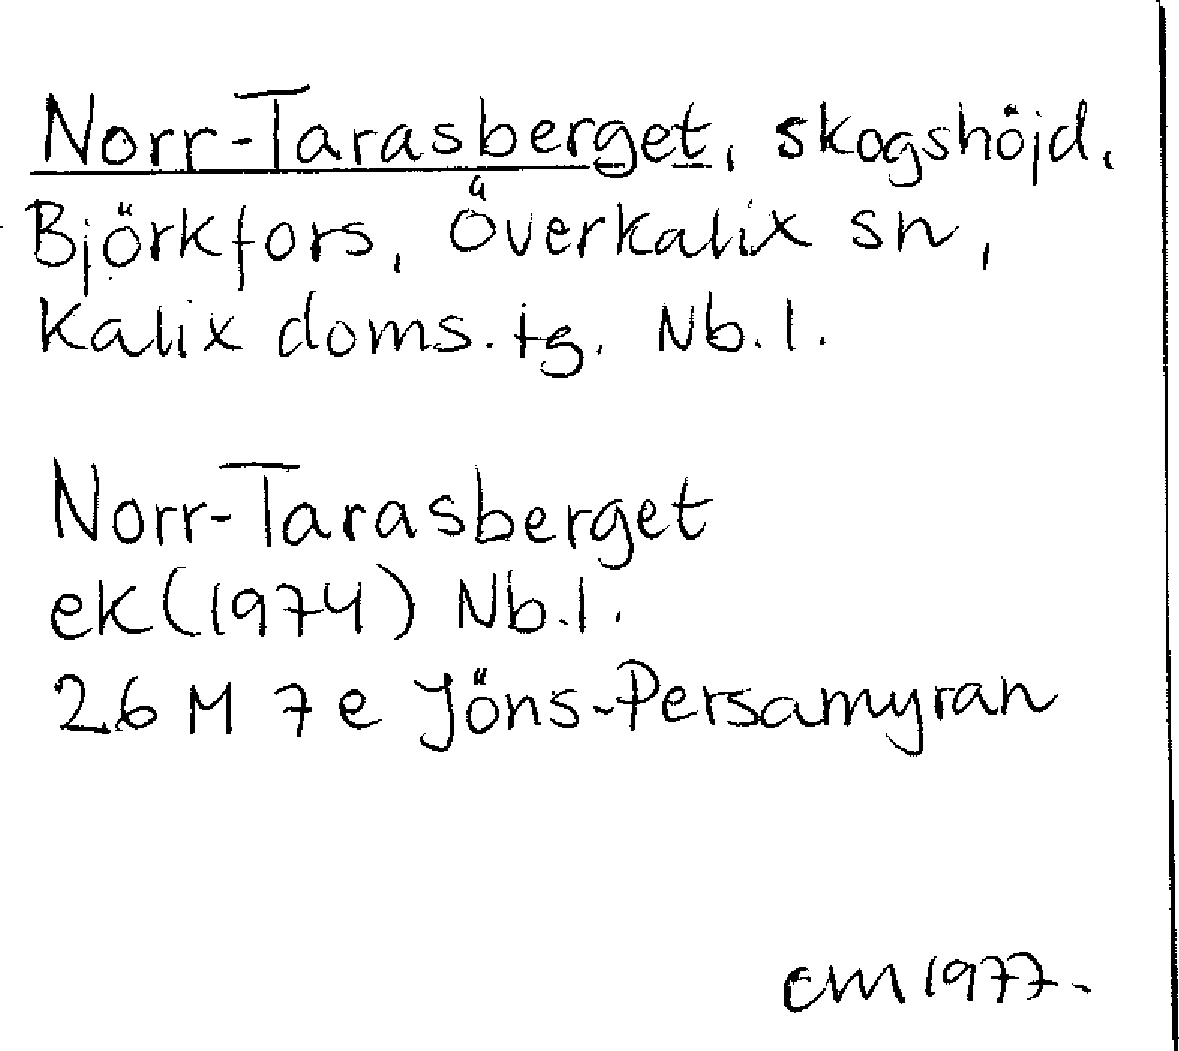 Norr-Tarasberget, skogshöjd,
Björkfors, Överkalix sn,
Kalix doms. tg. Nb. l.
Norr-Tarasberget
ek (1974) Nb. l.
26 M 7 e Jöns-Persamyran
CM 1977.